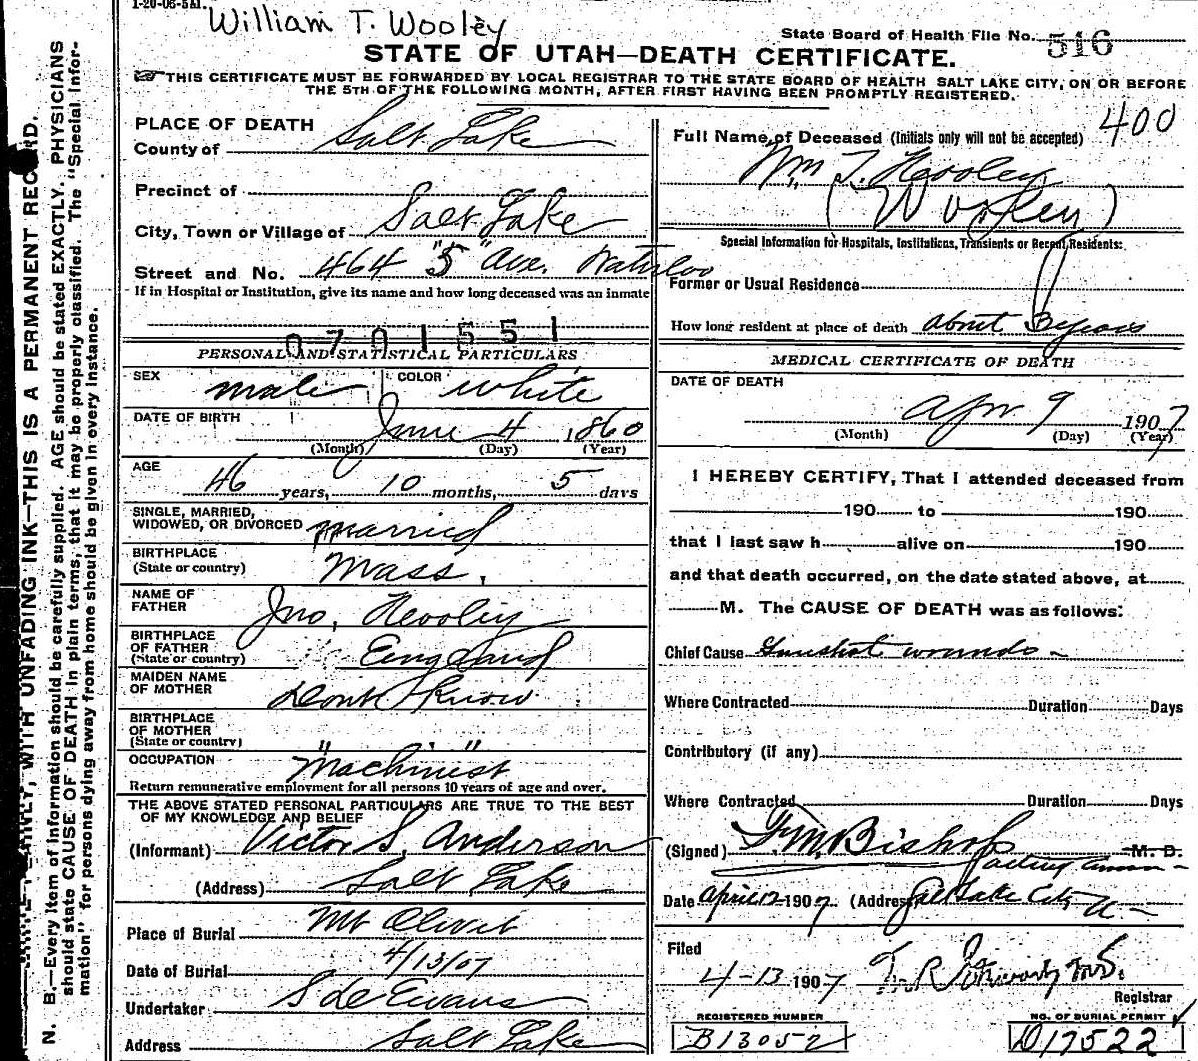 1-20-06-5M.
William T. Wooley
State Board of Health File No. 516
STATE OF UTAH—DEATH CERTIFICATE.
THIS CERTIFICATE MUST BE FORWARDED BY LOCAL REGISTRAR TO THE STATE BOARD OF HEALTH SALT LAKE CITY, ON OR BEFORE
THE 5TH OF THE FOLLOWING MONTH, AFTER FIRST HAVING BEEN PROMPTLY REGISTERED.
N. B.—Every item of information should be carefully supplied. AGE should be stated EXACTLY. PHYSICIANS
should state CAUSE OF DEATH in plain terms, that it may be properly classified. The "Special Infor-
mation" for persons dying away from home should be given in every instance.
WITH UNFADING INK—THIS IS A PERMANENT RECORD.
PLACE OF DEATH
County of Salt Lake
Precinct of
City, Town or Village of Salt Lake
Street and No. 464 "5" Ave. Waterloo
If in Hospital or Institution, give its name and how long deceased was an inmate
0701551
PERSONAL AND STATISTICAL PARTICULARS
SEX male COLOR white
DATE OF BIRTH June 4 1860
(Month) (Day) (Year)
AGE 46 years, 10 months, 5 days
SINGLE, MARRIED,
WIDOWED, OR DIVORCED married
BIRTHPLACE
(State or country) Mass.
NAME OF
FATHER Jno. Hooley
BIRTHPLACE
OF FATHER
(State or country) England
MAIDEN NAME
OF MOTHER Dont Know
BIRTHPLACE
OF MOTHER
(State or country) " "
OCCUPATION Machinist
Return remunerative employment for all persons 10 years of age and over.
THE ABOVE STATED PERSONAL PARTICULARS ARE TRUE TO THE BEST
OF MY KNOWLEDGE AND BELIEF
(Informant) Victor S. Anderson
(Address) Salt Lake
Place of Burial Mt Olivet
Date of Burial 4/13/07
Undertaker S de Evans
Address Salt Lake
400
Full Name of Deceased (Initials only will not be accepted)
Wm T. Hooley
(Wooley)
Special Information for Hospitals, Institutions, Transients or Recent Residents:
Former or Usual Residence
How long resident at place of death about 3 years
MEDICAL CERTIFICATE OF DEATH
DATE OF DEATH
Apr 9 1907
(Month) (Day) (Year)
I HEREBY CERTIFY, That I attended deceased from
190 to 190
that I last saw h alive on 190
and that death occurred, on the date stated above, at
M. The CAUSE OF DEATH was as follows:
Chief Cause Gunshot wounds
Where Contracted Duration Days
Contributory (if any)
Where Contracted Duration Days
(Signed) F. M. Bishop M. D.
acting
Date April 12 1907 (Address) Salt Lake City U
Filed
4-13 1907 M.D.
Registrar
REGISTERED NUMBER NO. OF BURIAL PERMIT
B13052 D17522